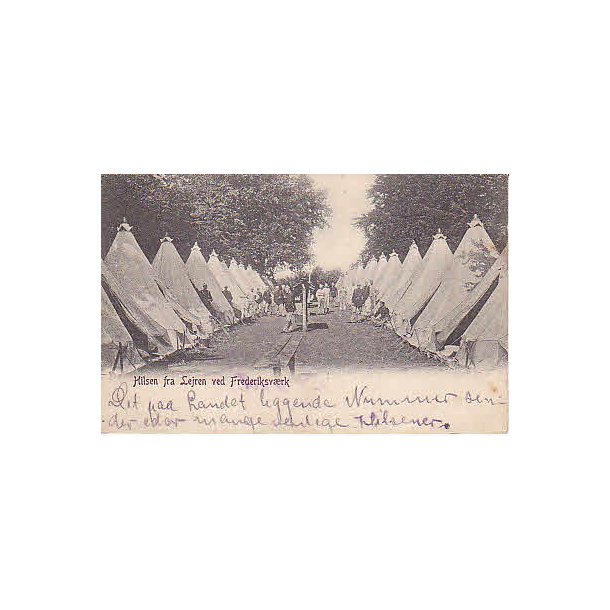 Hilsen fra Lejren ved Frederiksværk
Det paa Landet liggende Nummer sen-
der eder mange venlige Hilsener.